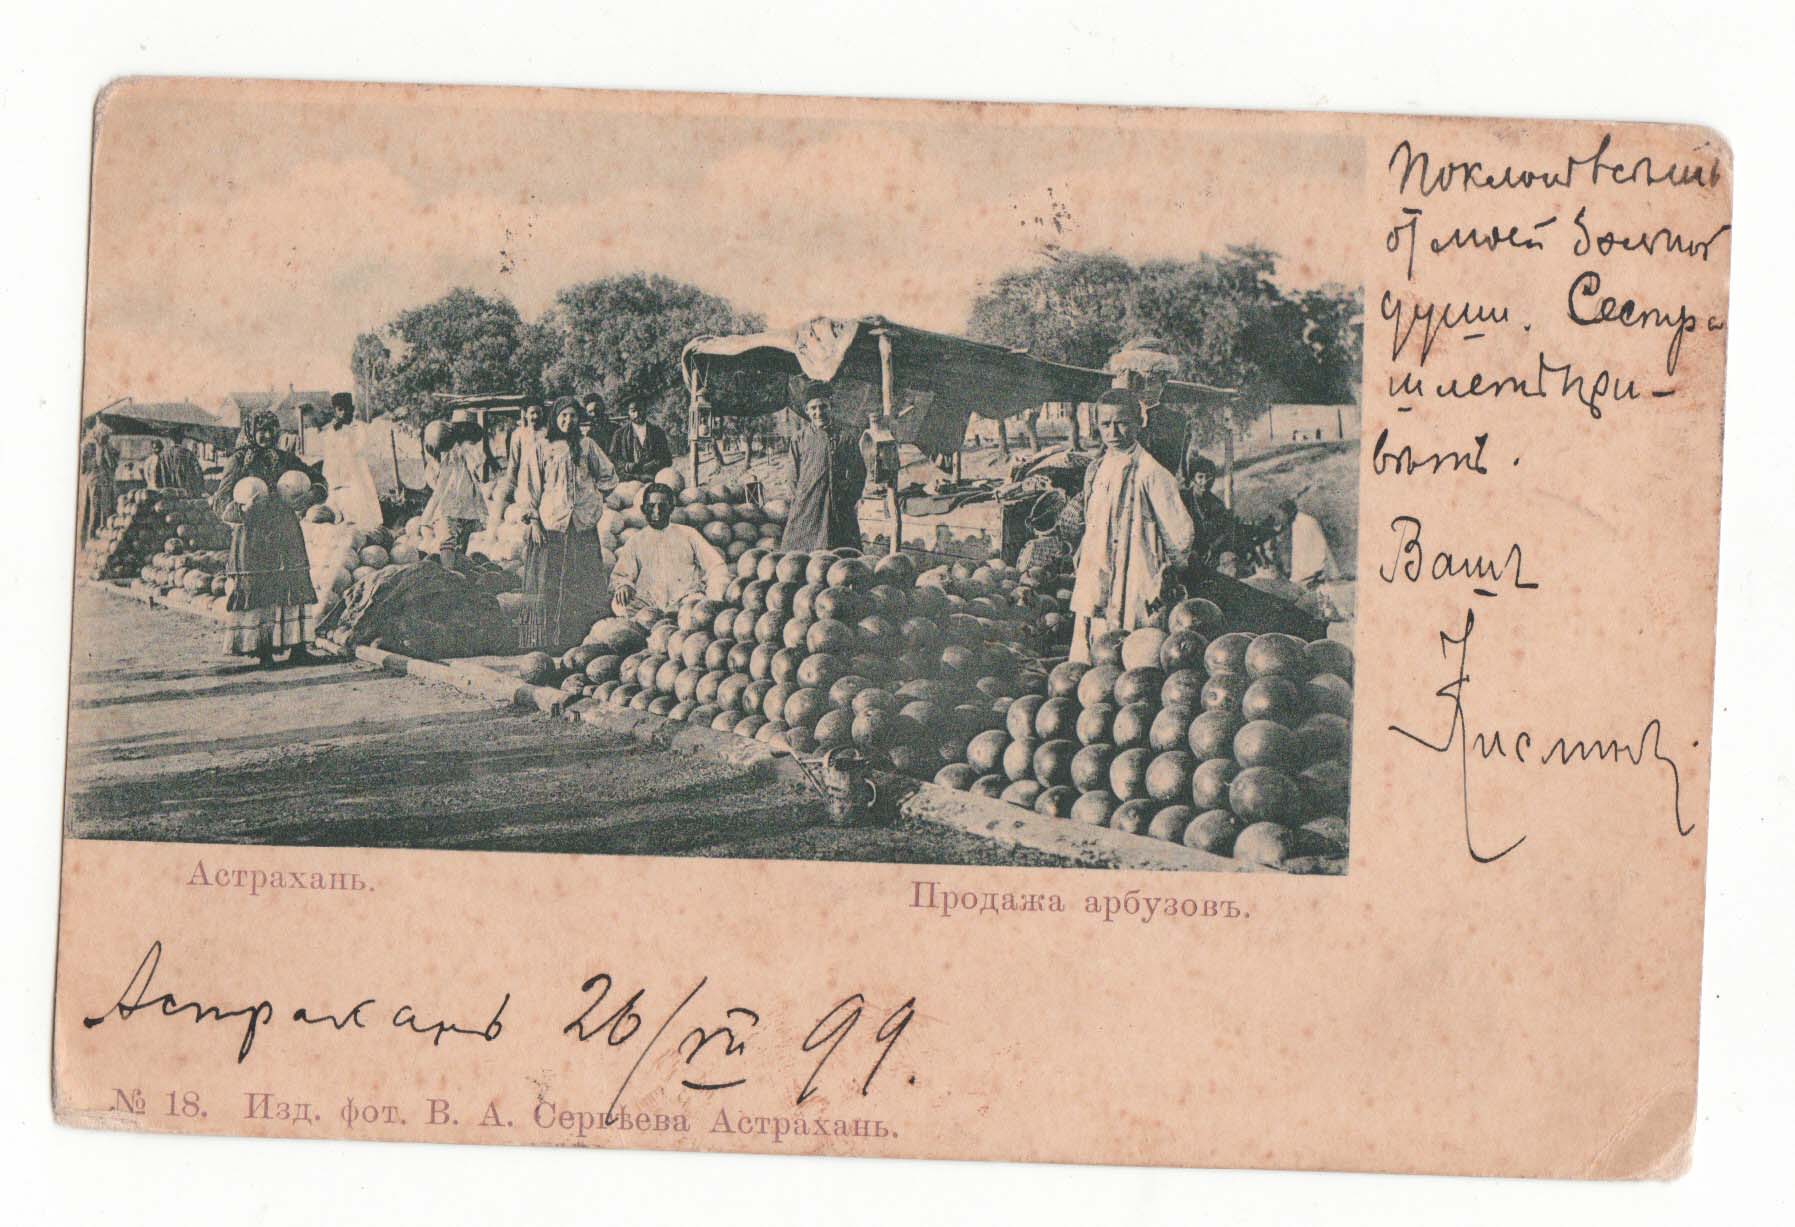 Поклонъ всѣмъ
отъ моей
души. Сестра
шлетъ при-
вѣтъ.
Вашъ
Астрахань.
Продажа арбузовъ.
Астрахань 26/VII 99.
№ 18. Изд. фот. В. А. Сергѣева Астрахань.